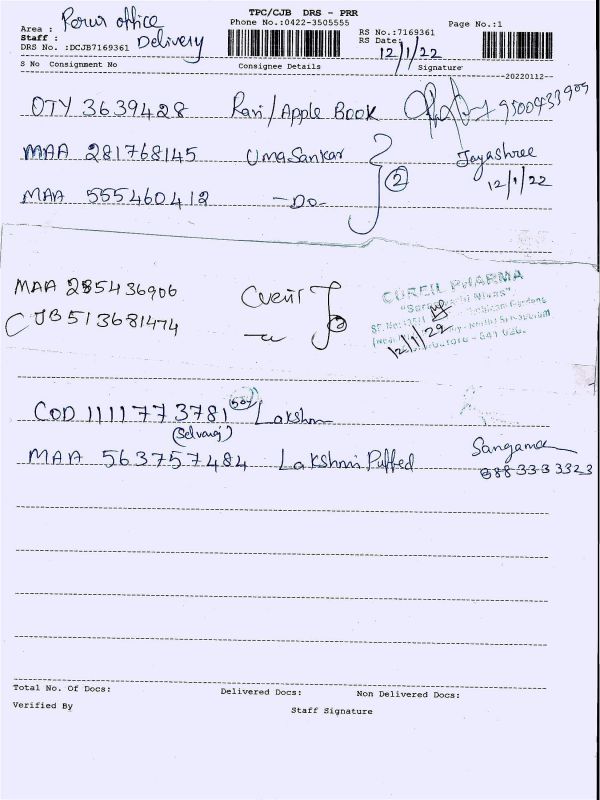 TPC/CJB DRS - PRR
Phone No.:0422-3505555
Page No.:1
Area : Perur office
Staff : Delivery
DRS No. :DCJB7169361
RS No.:7169361
RS Date: 12/1/22
S No Consignment No Consignee Details Signature
20220112
OTY 3639428 Ravi/Apple Book 9500433905
MAA 281768145 UmaSankar Jayashree
12/1/22
2
MAA 555460412 -Do-
MAA 285436906
CJB 513681474
CUREIL PHARMA
12/1/22
507
COD 1111773781 Lakshm
(Selvaraj)
MAA 563757484 Lakshmi Puffed
Sangama
Total No. Of Docs: Delivered Docs: Non Delivered Docs:
Verified By Staff Signature